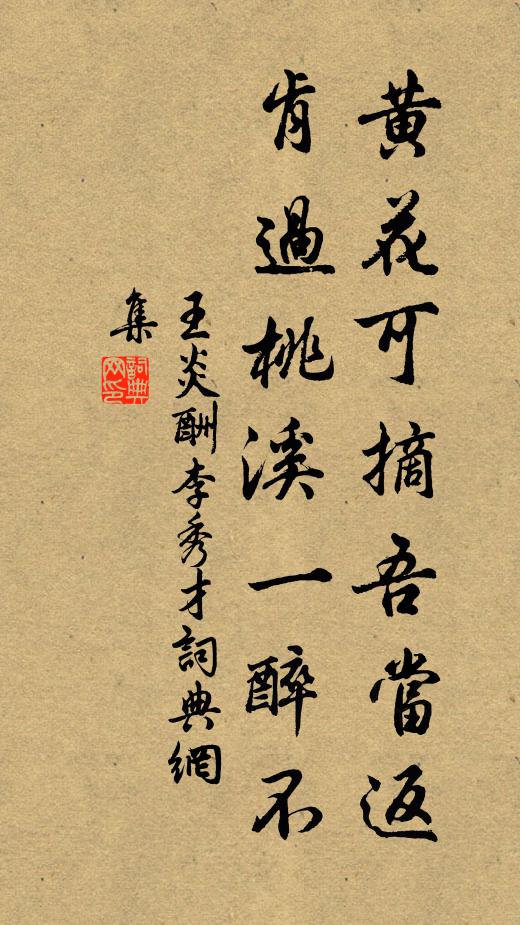 黃花可摘吾當返
肯過桃溪一醉不
王炎酬李秀才詞典網
集
詞典
网印